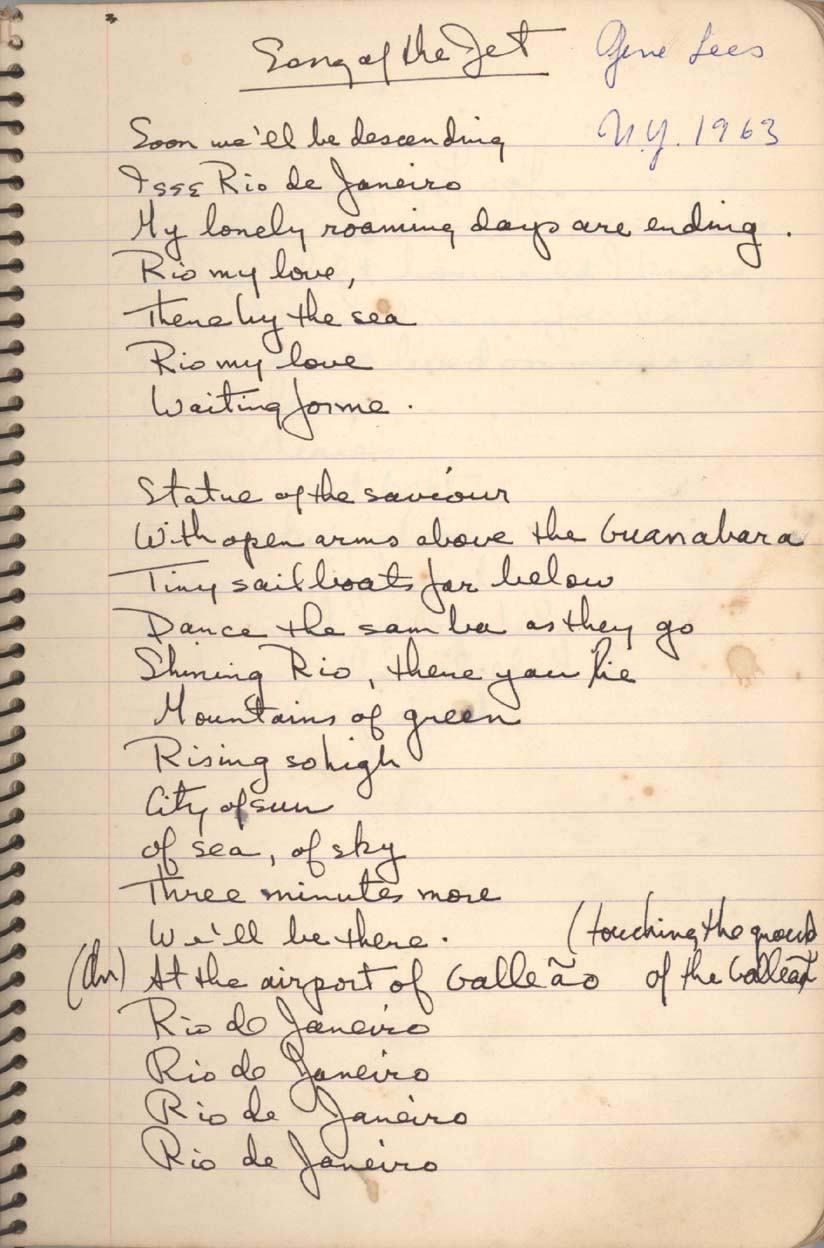 Song of the Jet
Gene Lees
N.Y. 1963
Soon we'll be descending
Rio de Janeiro
My lonely roaming days are ending.
Rio my love,
There by the sea
Rio my love
Waiting for me.
Statue of the saviour
With open arms above the Guanabara
Tiny sailboats far below
Dance the samba as they go
Shining Rio, there you lie
Mountains of green
Rising so high
City of sun
of sea, of sky
Three minutes more
We'll be there. (touching the ground
At the airport of Galleão of the Galleão
Rio de Janeiro
Rio de Janeiro
Rio de Janeiro
Rio de Janeiro